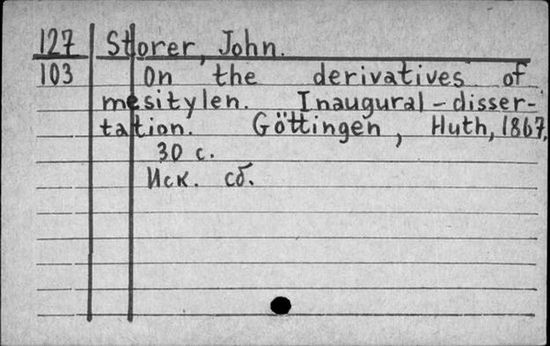 127 Storer, John.
103 On the derivatives of
mesitylen. Inaugural-disser-
tation. Göttingen, Huth, 1867,
30 с.
Иск. сб.